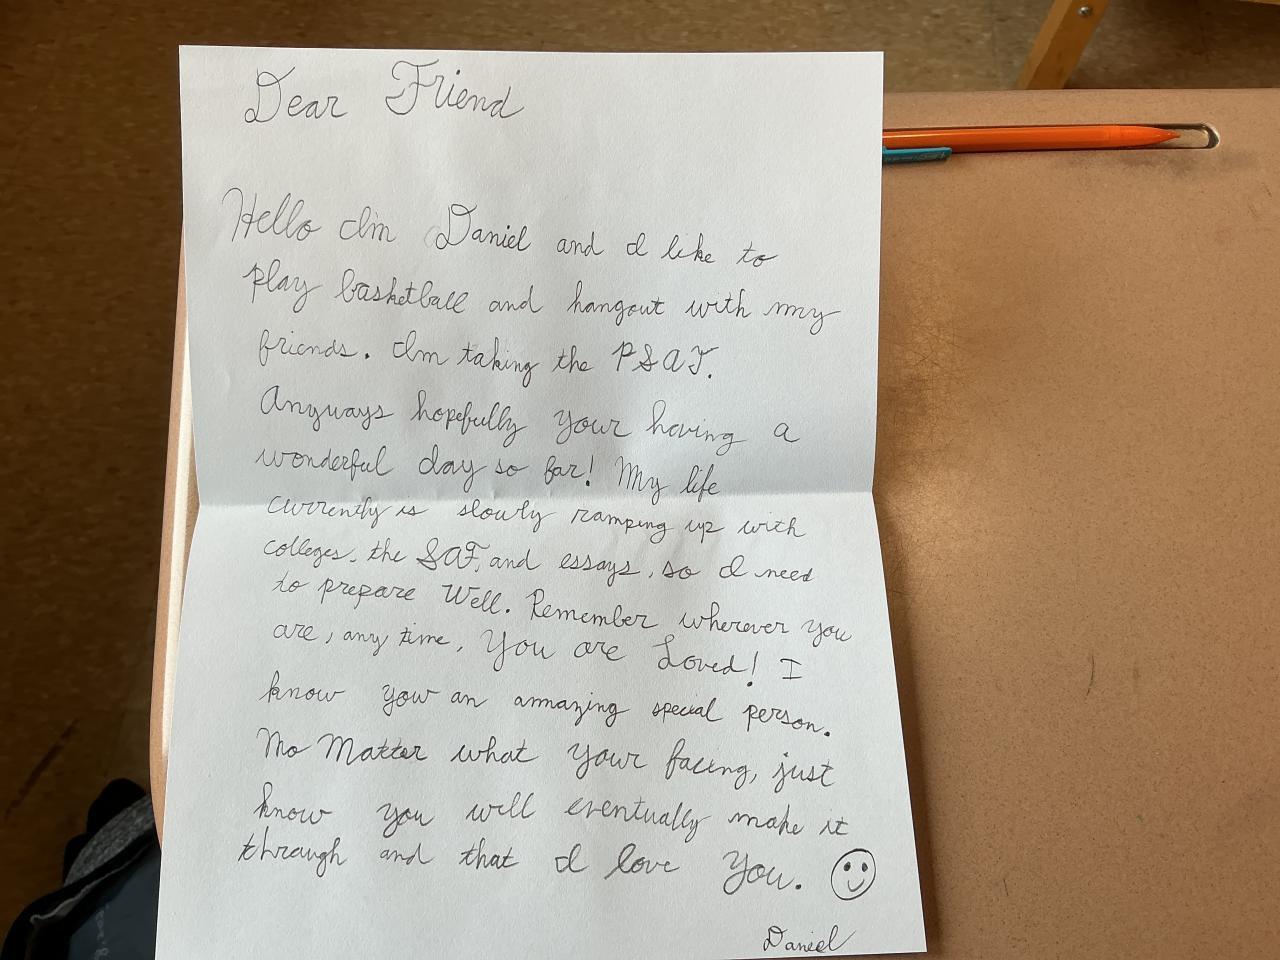 Dear Friend
Hello Im Daniel and I like to
play basketball and hangout with my
friends. Im taking the PSAT.
Anyways hopefully your having a
wonderful day so far! My life
currently is slowly ramping up with
colleges, the SAT, and essays, so I need
to prepare Well. Remember wherever you
are, any time, You are Loved! I
know your an amazing special person.
No Matter what your facing, just
know you will eventually make it
through and that I love You.
Daniel